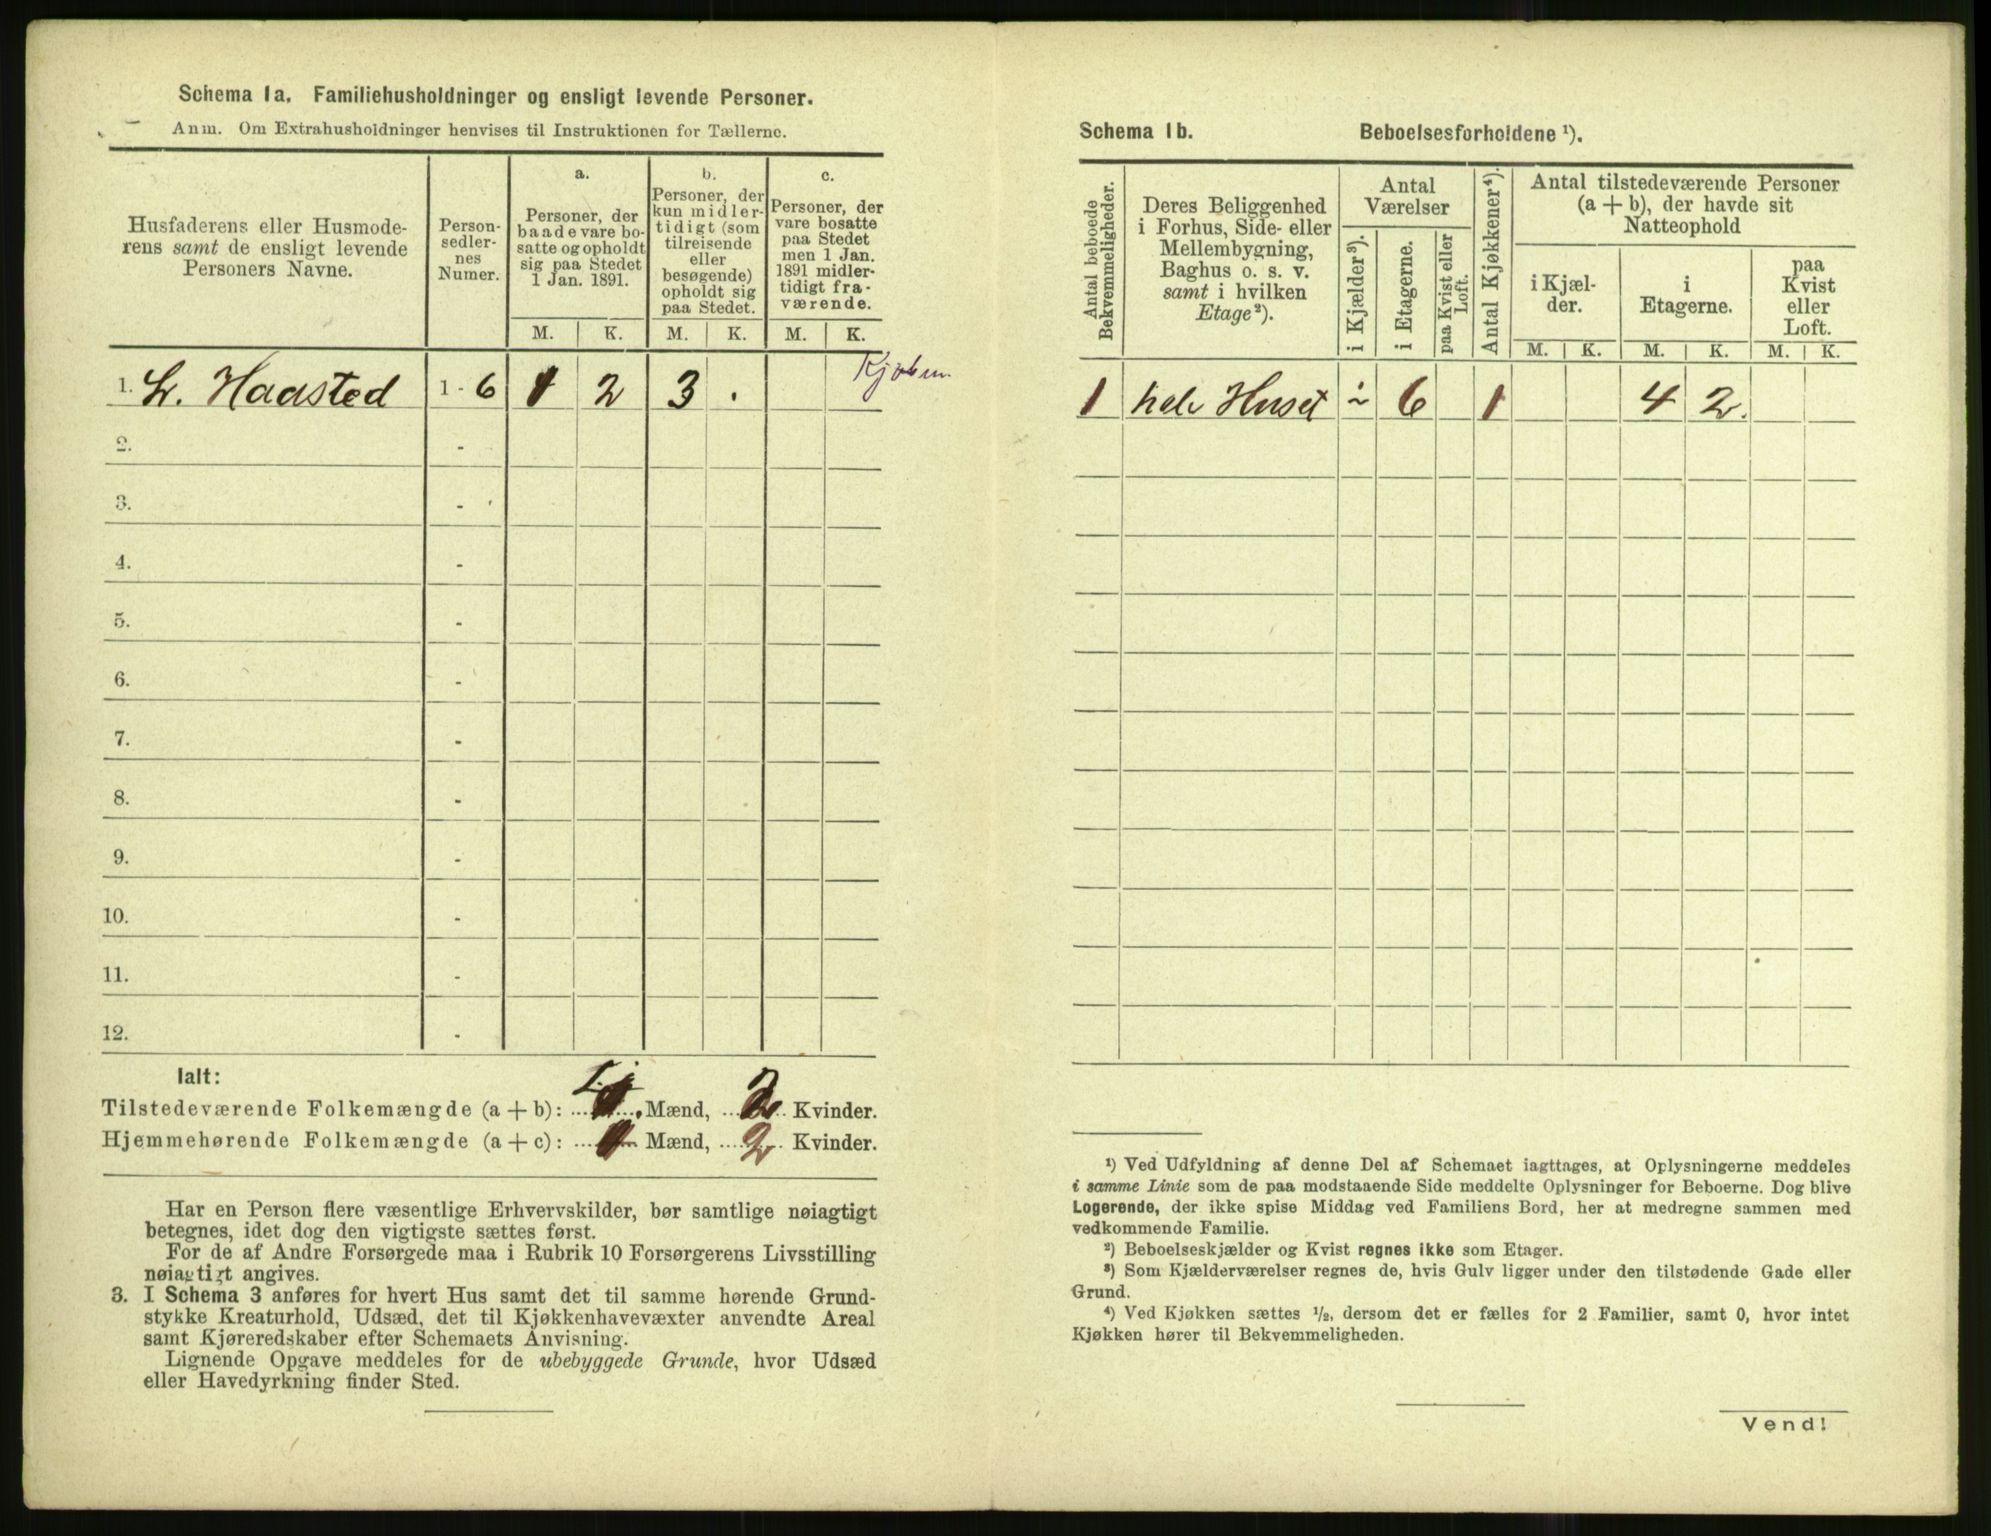 Schema 1a. Familiehusholdninger og ensligt levende Personer.
Anm. Om Extrahusholdninger henvises til Instruktionen for Tællerne.
Husfaderens eller Husmode-
rens samt de ensligt levende
Personers Navne.
Person-
sedler-
nes
Numer.
a.
Personer, der
baade vare bo-
satte og opholdt
sig paa Stedet
1 Jan. 1891.
b.
Personer, der
kun midler-
tidigt (som
tilreisende
eller
besøgende)
opholdt sig
paa Stedet.
c.
Personer, der
vare bosatte
paa Stedet
men 1 Jan.
1891 midler-
tidigt fra-
værende.
M. K. M. K. M. K.
1. L. Haasted 1 - 6 1 2 3 .
2. -
3. -
4. -
5. -
6. -
7. -
8. -
9. -
10. -
11. -
12. -
Ialt:
Tilstedeværende Folkemængde (a + b): ... Mænd, 2 Kvinder.
Hjemmehørende Folkemængde (a + c): ... Mænd, 2 Kvinder.
Har en Person flere væsentlige Erhvervskilder, bør samtlige nøiagtigt
betegnes, idet dog den vigtigste sættes først.
For de af Andre Forsørgede maa i Rubrik 10 Forsørgerens Livsstilling
nøiagtigt angives.
3. I Schema 3 anføres for hvert Hus samt det til samme hørende Grund-
stykke Kreaturhold, Udsæd, det til Kjøkkenhavevæxter anvendte Areal
samt Kjøreredskaber efter Schemaets Anvisning.
Lignende Opgave meddeles for de ubebyggede Grunde, hvor Udsæd
eller Havedyrkning finder Sted.
Schema 1b. Beboelsesforholdene ¹).
Antal beboede
Bekvemmeligheder.
Deres Beliggenhed
i Forhus, Side- eller
Mellembygning,
Baghus o. s. v.
samt i hvilken
Etage²).
Antal
Værelser
i Kjælder³).
i Etagerne.
paa Kvist eller
Loft.
Antal Kjøkkener⁴).
Antal tilstedeværende Personer
(a + b), der havde sit
Natteophold
i Kjæl-
der.
i
Etagerne.
paa
Kvist
eller
Loft.
M. K. M. K. M. K.
1 hele Huset ÷ 6 1 4 2.
¹) Ved Udfyldning af denne Del af Schemaet iagttages, at Oplysningerne meddeles
i samme Linie som de paa modstaaende Side meddelte Oplysninger for Beboerne. Dog blive
Logerende, der ikke spise Middag ved Familiens Bord, her at medregne sammen med
vedkommende Familie.
²) Beboelseskjælder og Kvist regnes ikke som Etager.
³) Som Kjælderværelser regnes de, hvis Gulv ligger under den tilstødende Gade eller
Grund.
⁴) Ved Kjøkken sættes ½, dersom det er fælles for 2 Familier, samt 0, hvor intet
Kjøkken hører til Bekvemmeligheden.
Vend!